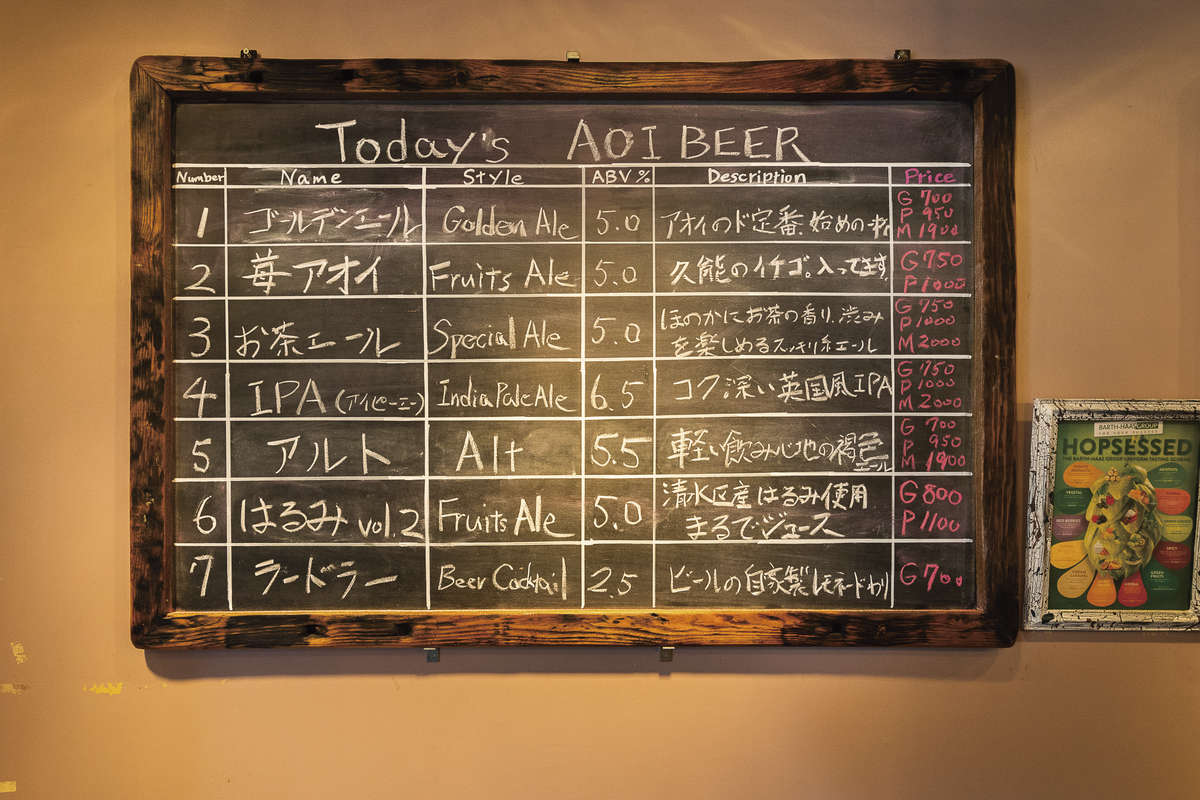 Today's AOI BEER
Number Name Style ABV% Description Price
1 ゴールデンエール Golden Ale 5.0 アオイのド定番.始めの一杯 G 700
P 950
M 1900
2 苺アオイ Fruits Ale 5.0 久能のイチゴ。入ってます G 750
P 1000
3 お茶エール Special Ale 5.0 ほのかにお茶の香り.渋み G 750
を楽しめるスッキリ系エール P 1000
M 2000
4 IPA (アイピーエー) India Pale Ale 6.5 コク深い英国風IPA G 750
P 1000
M 2000
5 アルト Alt 5.5 軽い飲み心地の褐色 G 700
エール P 950
M 1900
6 はるみ vol.2 Fruits Ale 5.0 清水区産はるみ使用 G 800
まるでジュース P 1100
7 ラードラー Beer Cocktail 2.5 ビールの自家製レモネードわり G 700
BARTH-HAAS GROUP
HOPSESSED